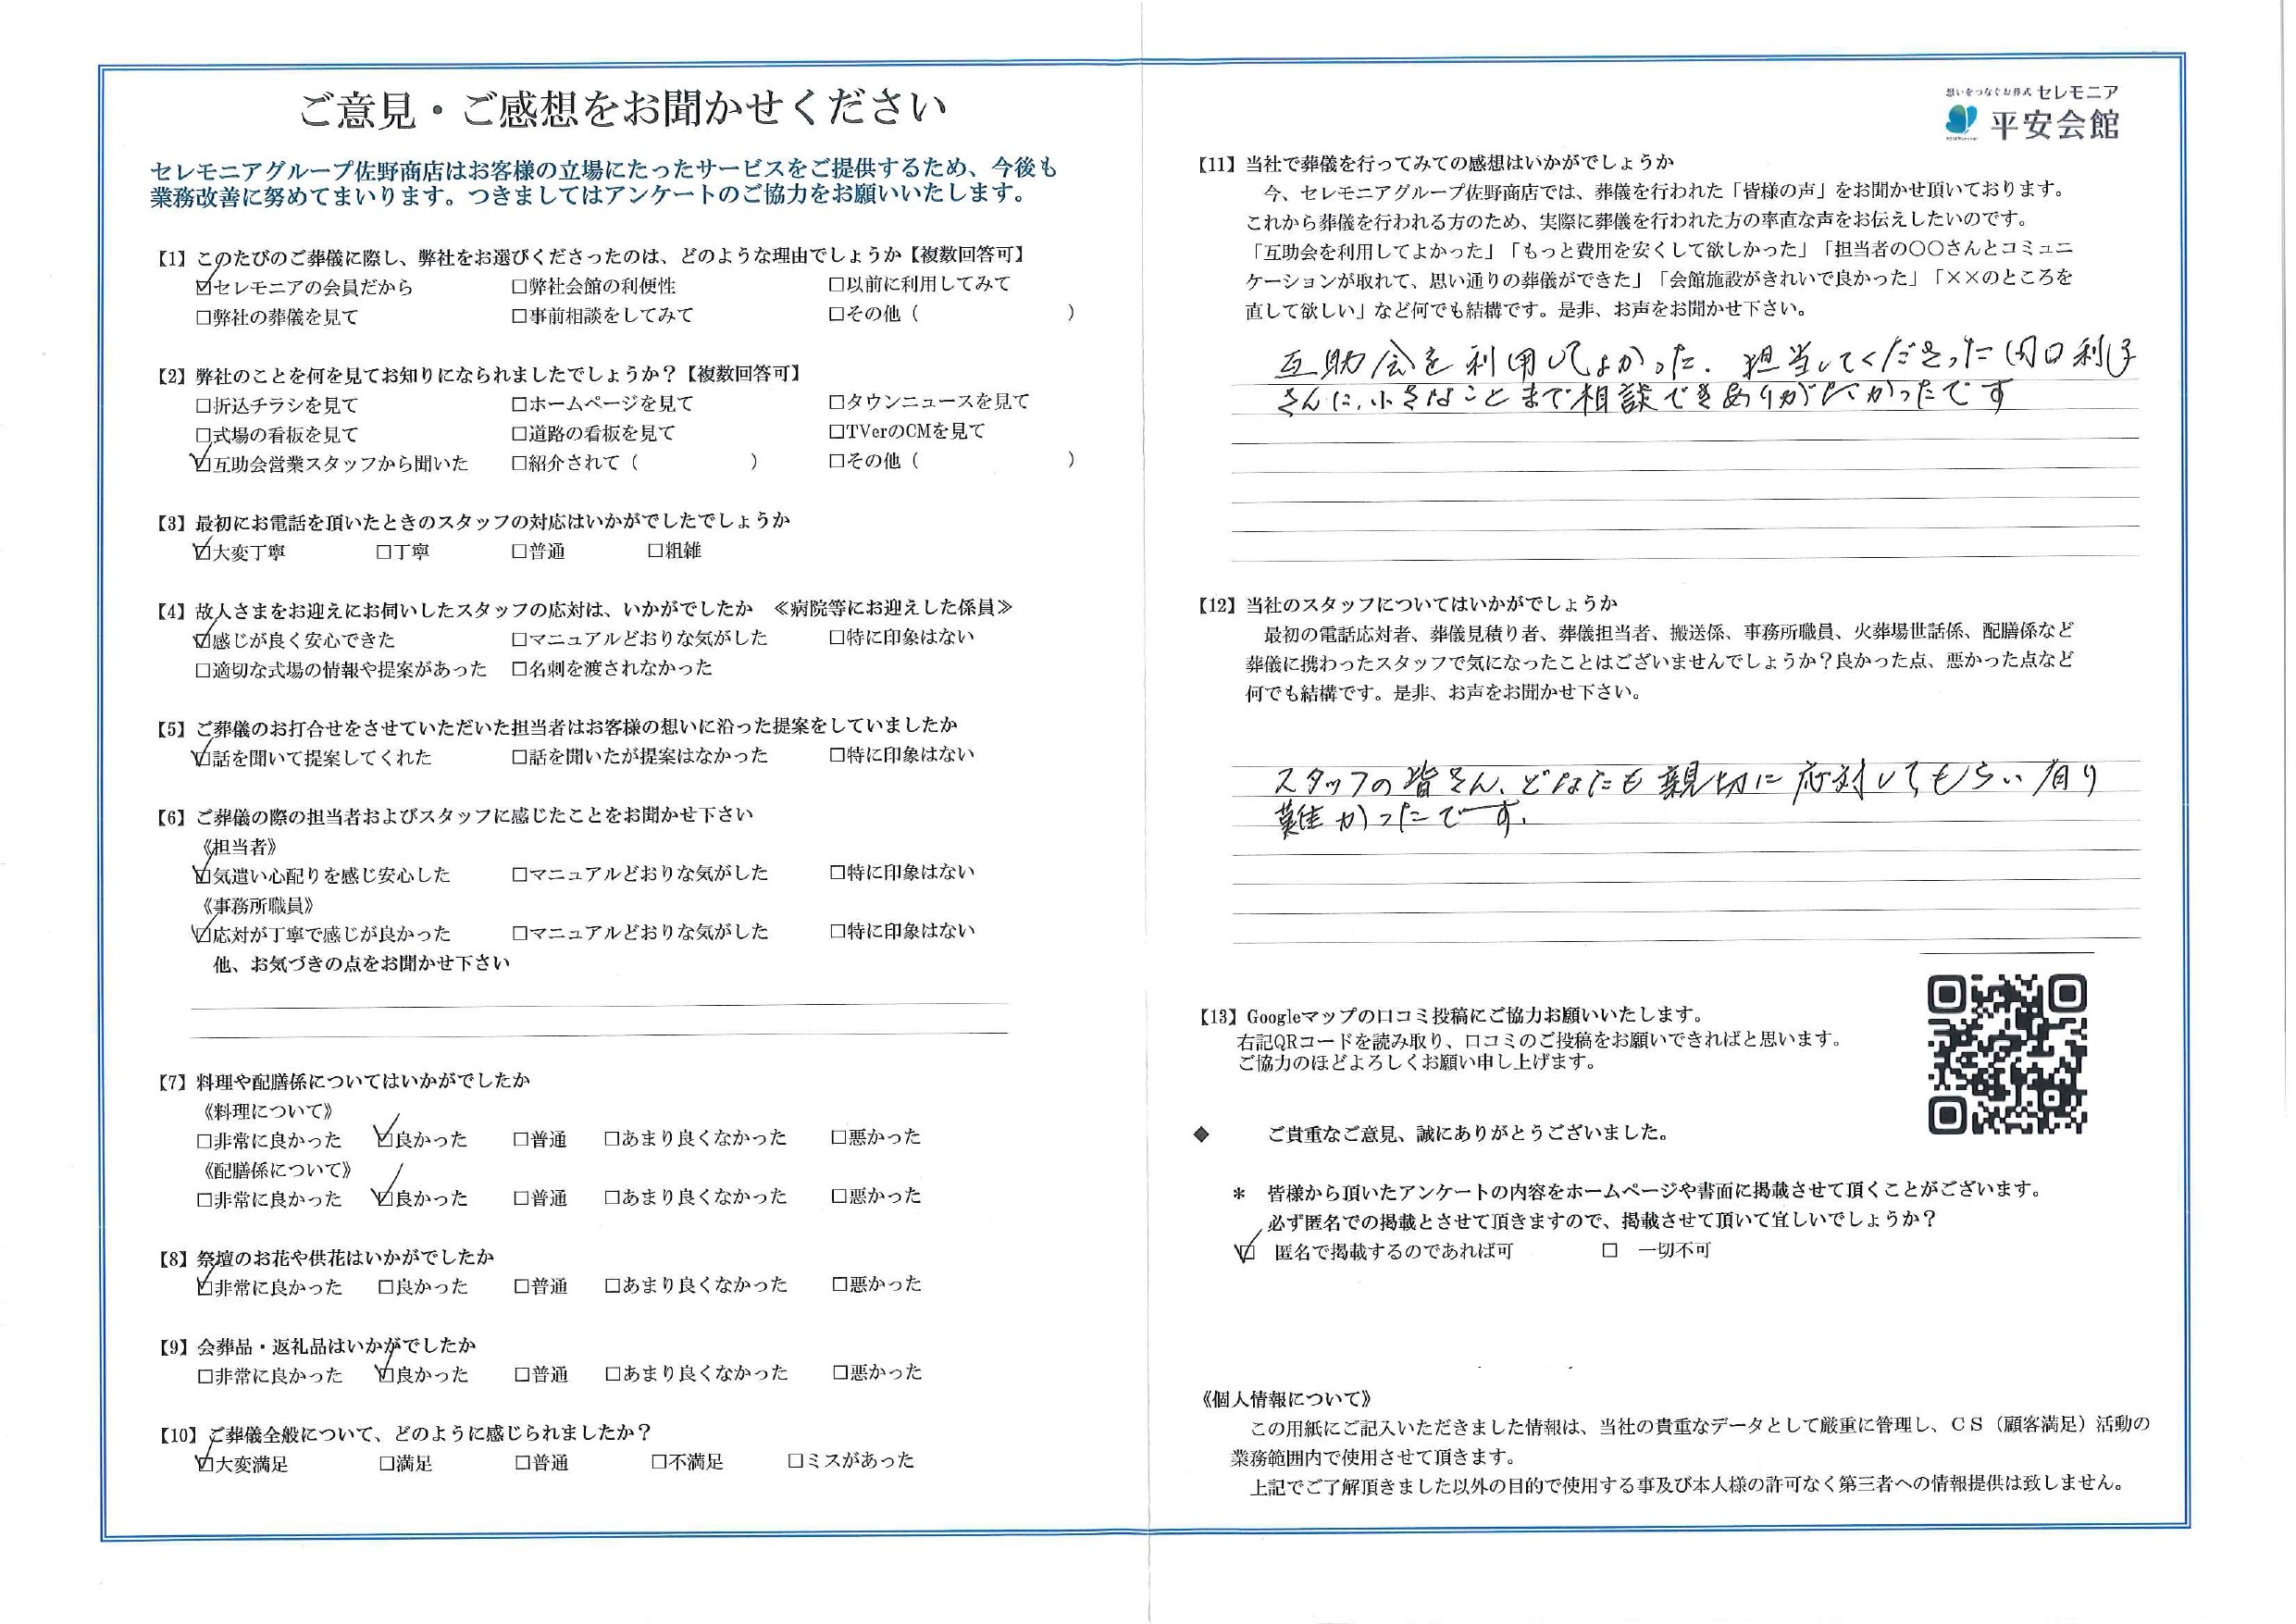 ご意見・ご感想をお聞かせください
セレモニアグループ佐野商店はお客様の立場にたったサービスをご提供するため、今後も
業務改善に努めてまいります。つきましてはアンケートのご協力をお願いいたします。
【1】このたびのご葬儀に際し、弊社をお選びくださったのは、どのような理由でしょうか【複数回答可】
☑セレモニアの会員だから □弊社会館の利便性 □以前に利用してみて
□弊社の葬儀を見て □事前相談をしてみて □その他（ ）
【2】弊社のことを何を見てお知りになられましたでしょうか？【複数回答可】
□折込チラシを見て □ホームページを見て □タウンニュースを見て
□式場の看板を見て □道路の看板を見て □TVerのCMを見て
☑互助会営業スタッフから聞いた □紹介されて（ ） □その他（ ）
【3】最初にお電話を頂いたときのスタッフの対応はいかがでしたでしょうか
☑大変丁寧 □丁寧 □普通 □粗雑
【4】故人さまをお迎えにお伺いしたスタッフの応対は、いかがでしたか ≪病院等にお迎えした係員≫
☑感じが良く安心できた □マニュアルどおりな気がした □特に印象はない
□適切な式場の情報や提案があった □名刺を渡されなかった
【5】ご葬儀のお打合せをさせていただいた担当者はお客様の想いに沿った提案をしていましたか
☑話を聞いて提案してくれた □話を聞いたが提案はなかった □特に印象はない
【6】ご葬儀の際の担当者およびスタッフに感じたことをお聞かせ下さい
《担当者》
☑気遣い心配りを感じ安心した □マニュアルどおりな気がした □特に印象はない
《事務所職員》
☑応対が丁寧で感じが良かった □マニュアルどおりな気がした □特に印象はない
他、お気づきの点をお聞かせ下さい
【7】料理や配膳係についてはいかがでしたか
《料理について》
□非常に良かった ☑良かった □普通 □あまり良くなかった □悪かった
《配膳係について》
□非常に良かった ☑良かった □普通 □あまり良くなかった □悪かった
【8】祭壇のお花や供花はいかがでしたか
☑非常に良かった □良かった □普通 □あまり良くなかった □悪かった
【9】会葬品・返礼品はいかがでしたか
□非常に良かった ☑良かった □普通 □あまり良くなかった □悪かった
【10】ご葬儀全般について、どのように感じられましたか？
☑大変満足 □満足 □普通 □不満足 □ミスがあった
想いをつなぐお葬式 セレモニア
平安会館
【11】当社で葬儀を行ってみての感想はいかがでしょうか
今、セレモニアグループ佐野商店では、葬儀を行われた「皆様の声」をお聞かせ頂いております。
これから葬儀を行われる方のため、実際に葬儀を行われた方の率直な声をお伝えしたいのです。
「互助会を利用してよかった」「もっと費用を安くして欲しかった」「担当者の〇〇さんとコミュニ
ケーションが取れて、思い通りの葬儀ができた」「会館施設がきれいで良かった」「××のところを
直して欲しい」など何でも結構です。是非、お声をお聞かせ下さい。
互助会を利用してよかった. 担当してくださった 口利子
さんに, 小さなことまで相談できありがたかったです
【12】当社のスタッフについてはいかがでしょうか
最初の電話応対者、葬儀見積り者、葬儀担当者、搬送係、事務所職員、火葬場世話係、配膳係など
葬儀に携わったスタッフで気になったことはございませんでしょうか？良かった点、悪かった点など
何でも結構です。是非、お声をお聞かせ下さい。
スタッフの皆さん、どなたも親切に応対してもらい有り
難かったです.
【13】Googleマップの口コミ投稿にご協力お願いいたします。
右記QRコードを読み取り、口コミのご投稿をお願いできればと思います。
ご協力のほどよろしくお願い申し上げます。
◆ ご貴重なご意見、誠にありがとうございました。
＊ 皆様から頂いたアンケートの内容をホームページや書面に掲載させて頂くことがございます。
必ず匿名での掲載とさせて頂きますので、掲載させて頂いて宜しいでしょうか？
☑ 匿名で掲載するのであれば可 □ 一切不可
《個人情報について》
この用紙にご記入いただきました情報は、当社の貴重なデータとして厳重に管理し、ＣＳ（顧客満足）活動の
業務範囲内で使用させて頂きます。
上記でご了解頂きました以外の目的で使用する事及び本人様の許可なく第三者への情報提供は致しません。